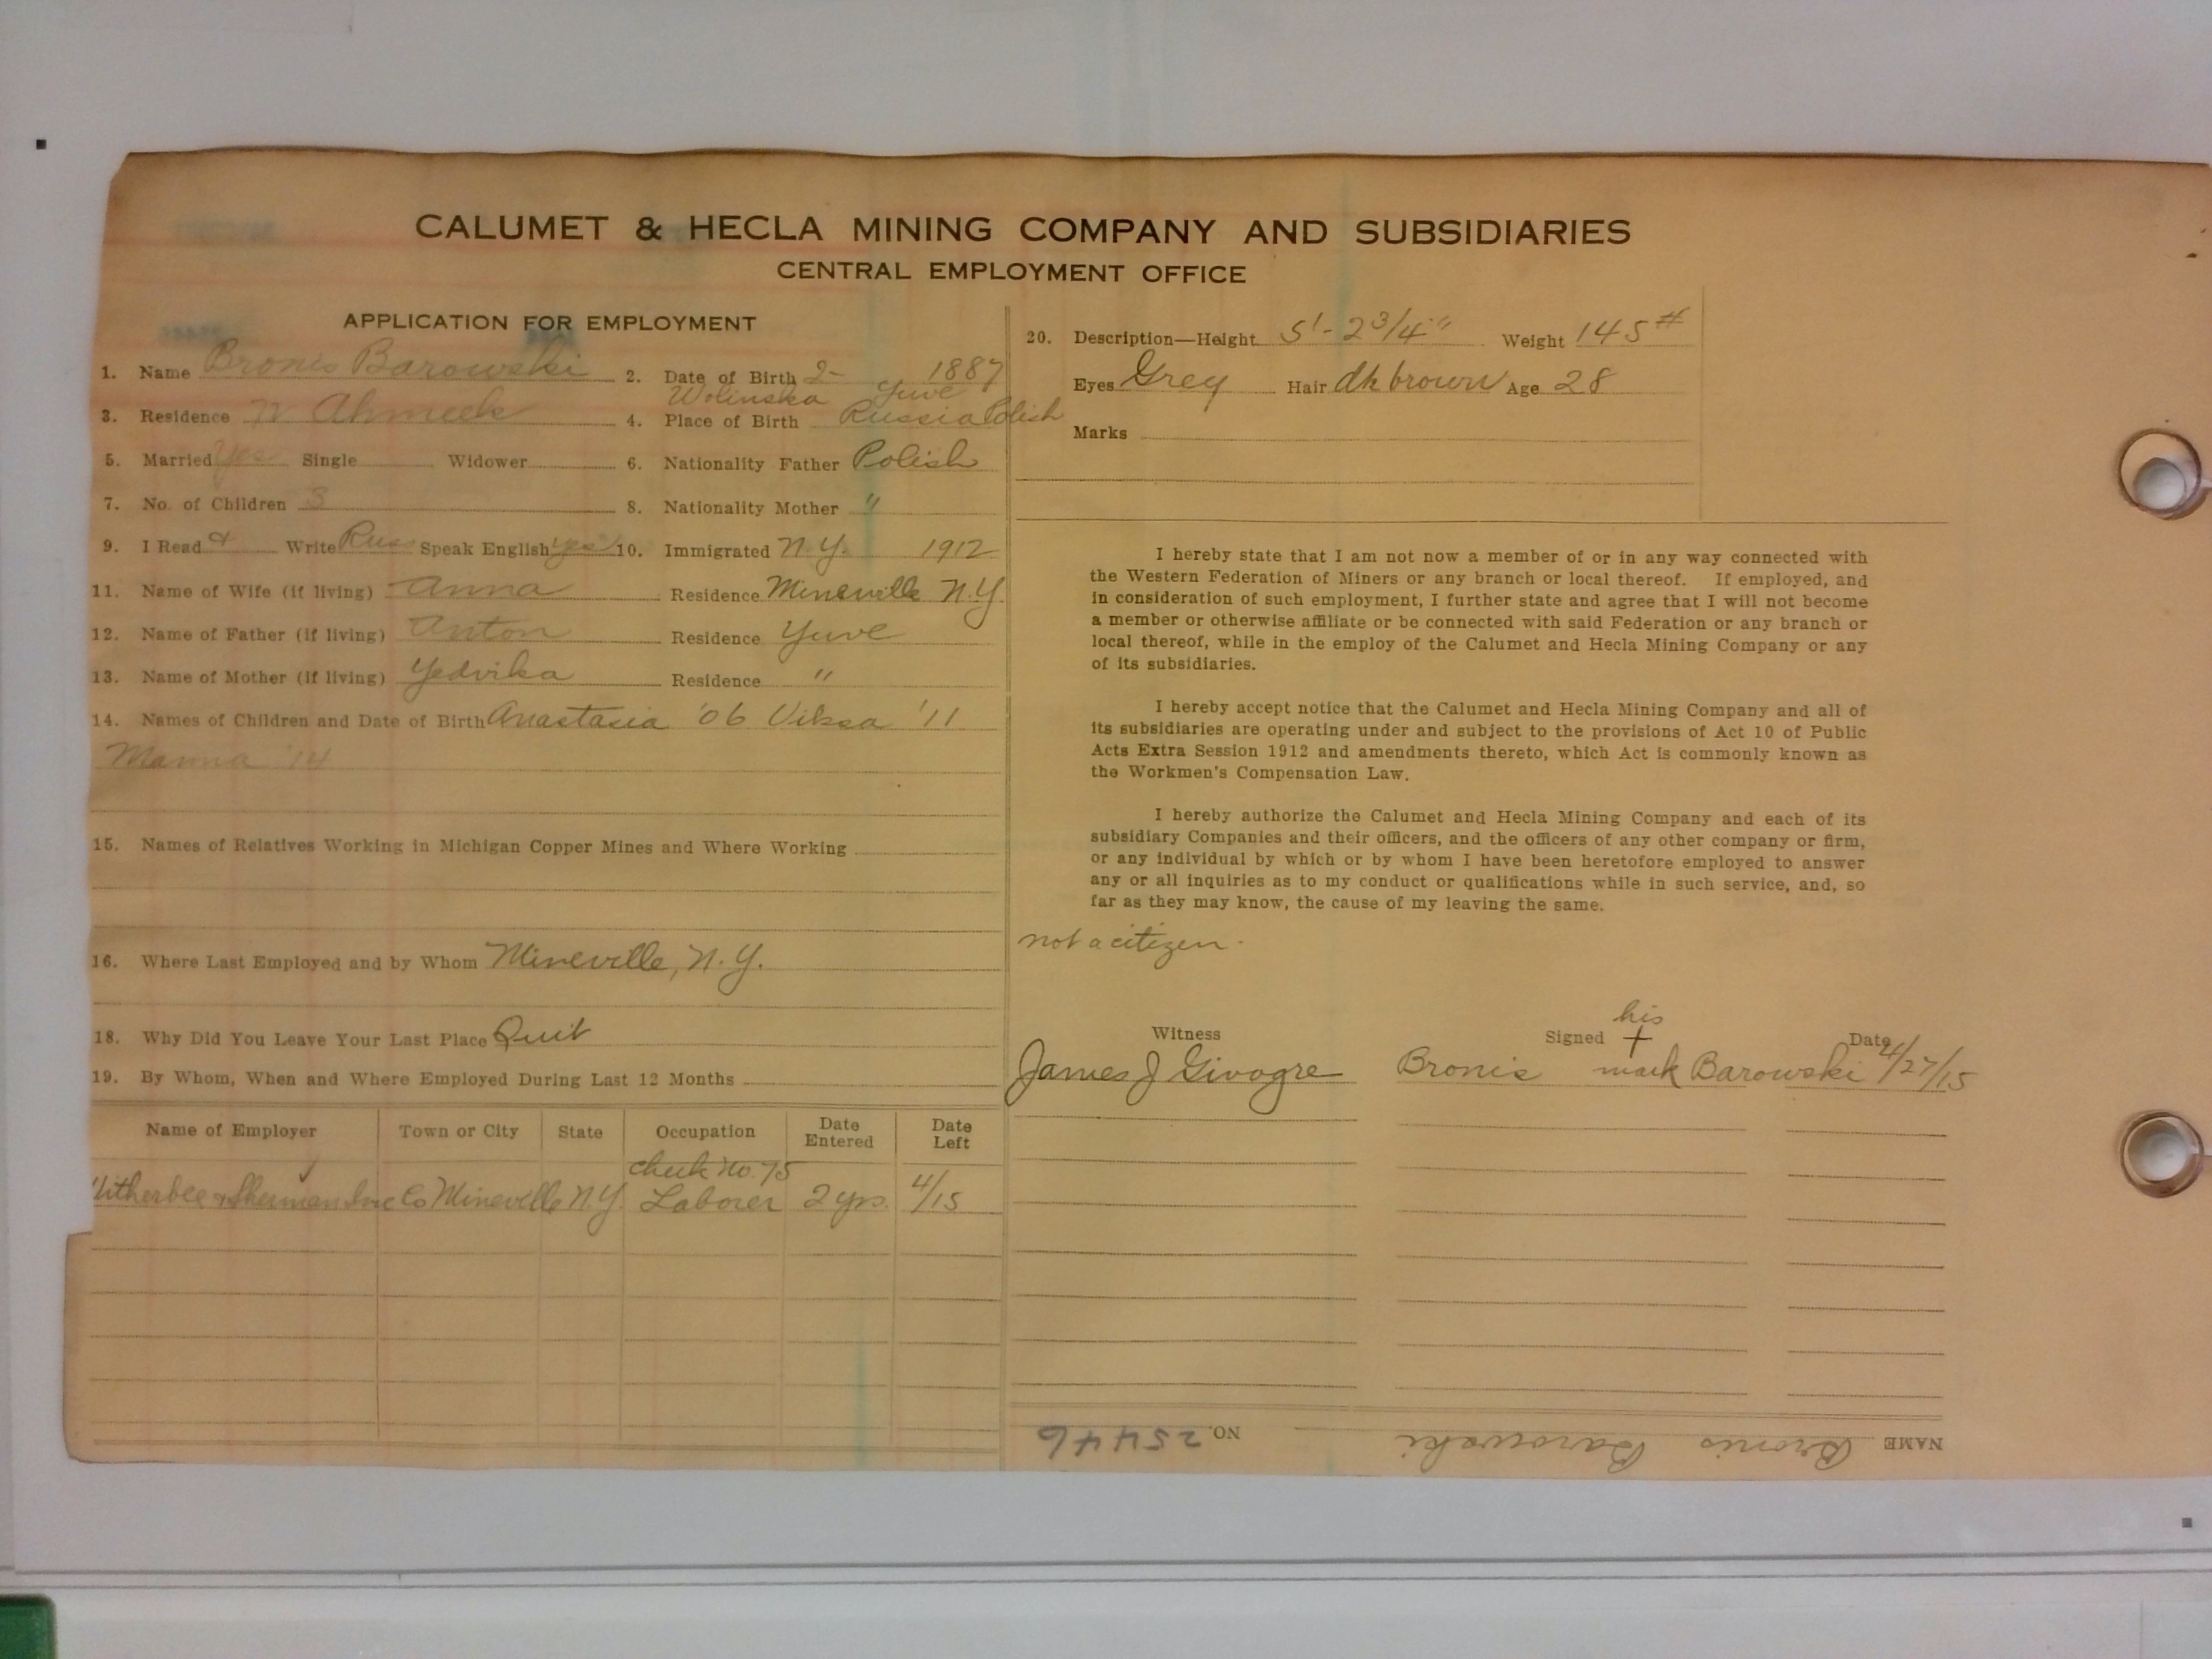 CALUMET & HECLA MINING COMPANY AND SUBSIDIARIES
CENTRAL EMPLOYMENT OFFICE
APPLICATION FOR EMPLOYMENT
1. Name Bronis Barowski 2. Date of Birth 2- 1887
Wolinska Yuve
3. Residence N Ahmeek 4. Place of Birth Russia Polish
5. Married Yes Single Widower 6. Nationality Father Polish
7. No. of Children 3 8. Nationality Mother "
9. I Read & Write Russ Speak English yes 10. Immigrated N.Y. 1912
11. Name of Wife (if living) Anna Residence Mineville N.Y.
12. Name of Father (if living) Anton Residence Yuve
13. Name of Mother (if living) Yedvika Residence "
14. Names of Children and Date of Birth Anastasia '06 '11
Manna '14
15. Names of Relatives Working in Michigan Copper Mines and Where Working
16. Where Last Employed and by Whom Mineville, N.Y.
18. Why Did You Leave Your Last Place Quit
19. By Whom, When and Where Employed During Last 12 Months
Name of Employer Town or City State Occupation Date Entered Date Left
check No. 75
Witherbee & Sherman Co Mineville N.Y. Laborer 2 yrs. 4/15
20. Description—Height 5'-2 3/4" Weight 145#
Eyes Grey Hair dk brown Age 28
Marks
I hereby state that I am not now a member of or in any way connected with
the Western Federation of Miners or any branch or local thereof. If employed, and
in consideration of such employment, I further state and agree that I will not become
a member or otherwise affiliate or be connected with said Federation or any branch or
local thereof, while in the employ of the Calumet and Hecla Mining Company or any
of its subsidiaries.
I hereby accept notice that the Calumet and Hecla Mining Company and all of
its subsidiaries are operating under and subject to the provisions of Act 10 of Public
Acts Extra Session 1912 and amendments thereto, which Act is commonly known as
the Workmen's Compensation Law.
I hereby authorize the Calumet and Hecla Mining Company and each of its
subsidiary Companies and their officers, and the officers of any other company or firm,
or any individual by which or by whom I have been heretofore employed to answer
any or all inquiries as to my conduct or qualifications while in such service, and, so
far as they may know, the cause of my leaving the same.
not a citizen.
Witness Signed his + Date
James J Bronis mark Barowski 4/27/15
NAME Bronis Barowski NO. 25446